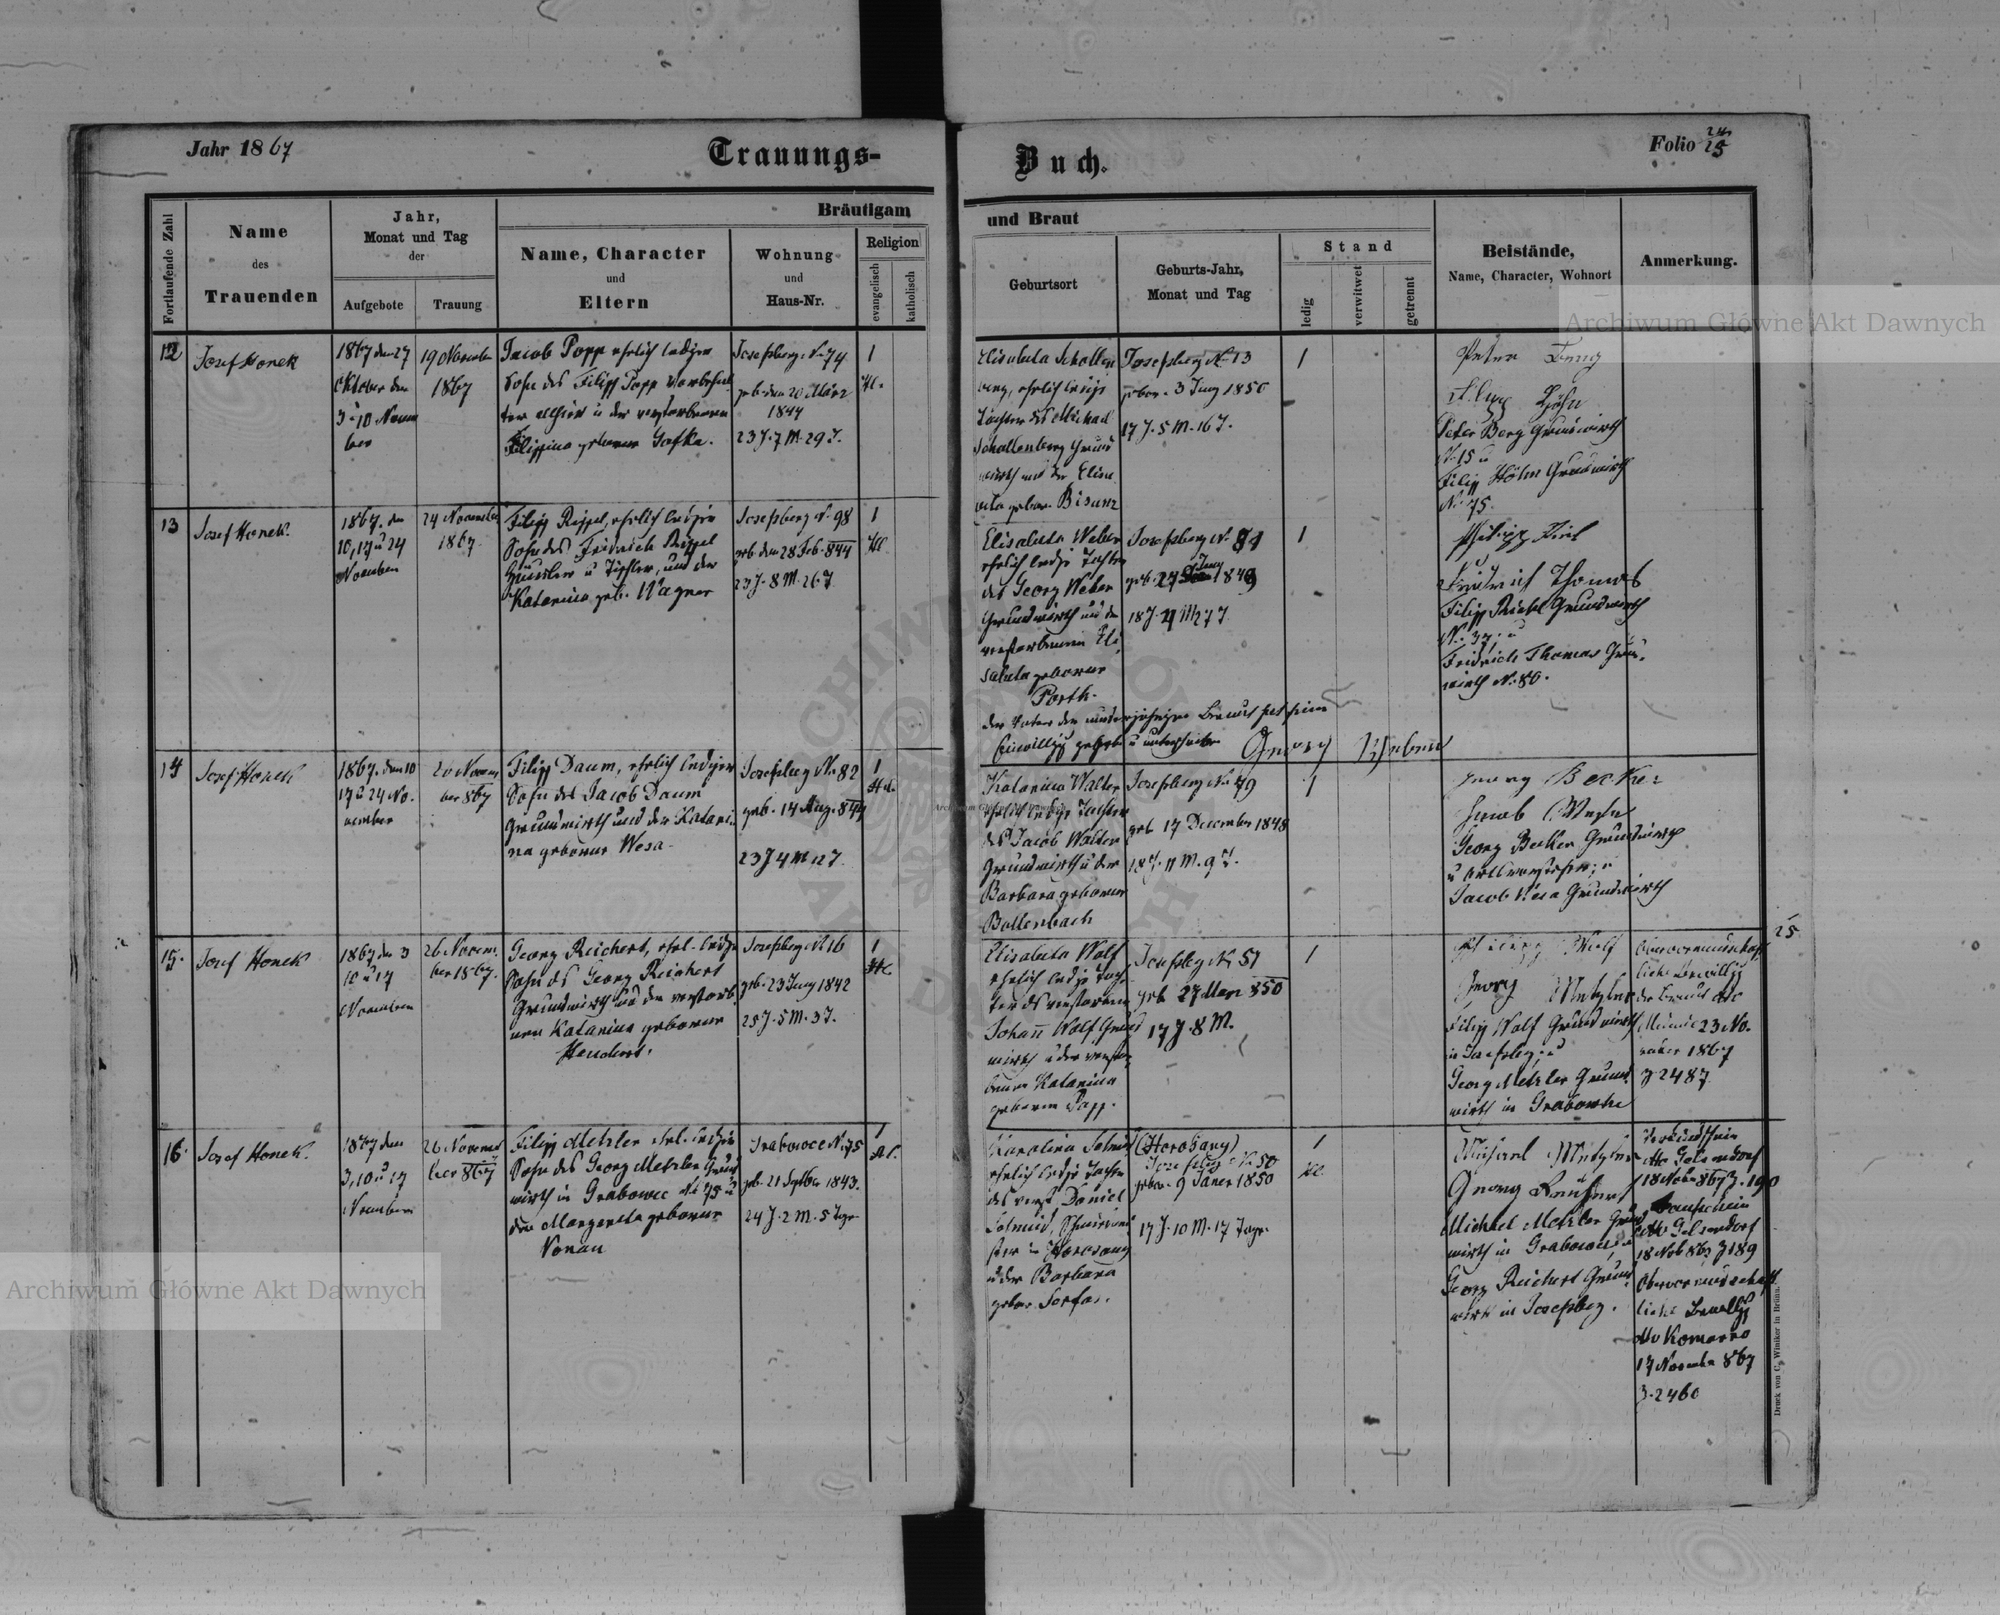 Jahr 1867
Trauungs-
Buch.
Folio 25
Fortlaufende Zahl
Name
des
Trauenden
Jahr,
Monat und Tag
der
Aufgebote
Trauung
Bräutigam
Name, Character
und
Eltern
Wohnung
und
Haus-Nr.
Religion
evangelisch
katholisch
und Braut
Geburtsort
Geburts-Jahr,
Monat und Tag
Stand
ledig
verwitwet
getrennt
Beistände,
Name, Character, Wohnort
Anmerkung.
12
Josef Honek
1867 den 27
Oktober den
3 u 10 Novem
ber
19 November
1867
Jacob Popp ehrlich lediger
Sohn des Filipp Popp
u der verstorbenen
Filippina geborene
Josefsberg N. 74
geb. den 20 März
1844
23 J. 7 M. 29 T.
1
Elisabeta Schollen
berg, ehrlich ledige
Tochter des Michael
Schollenberg Grund
wirth und der Elisa
beta gebor. Bisanz
Josefsberg No 13
gebor. 3 Juny 1850
17 J. 5 M. 16 T.
1
Peter Berg Grundwirth
N. 15 u
Filipp Höhn Grundwirth
N. 75.
13
Josef Honek.
1867. den
10, 17 u 24
November
24 November
1867
Filipp Rippel, ehrlich lediger
Sohn des Fridrich Rippel
Häusler u Tischler, und der
Katarina geb. Wagner
Josefsberg N. 98
geb den 28 Feb. 844
23 J. 8 M. 26 T.
1
Elisabeta Weber
ehrlich ledige Tochter
des Georg Weber
Grundwirth und der
verstorbenen Eli
sabeta geborene
Porth.
Josefsberg N.
geb. 27 Juny 1849
1
der Vater der minderjährigen Braut hat seine
Einwilligg gegeben u unterschrieben Georg Weber
Fridrich Thomas
Filipp Grundwirth
N. 37; u
Fridrich Thomas Grund
wirth N. 80.
14
Josef Honek
1867. den 10
17 u 24 No.
vember
26 Novem
ber 867
Filipp Daum, ehrlich lediger
Sohn des Jacob Daum
Grundwirth und der Katari
na geborene Wesa
Josefsberg No. 82
geb. 14 Aug. 844
1
Katarina Walter
ehrlich ledige Tochter
des Jacob Walter
Grundwirth u der
Barbara geborene
Bollenbach
Josefsberg N. 79
geb 17 December 1848
18 J. 11 M. 9 T.
1
Georg Becker
Jacob Wesa
Georg Becker Grundwirth
u Ortsvorsteher; u
Jacob Wesa Grundwirth
15.
Josef Honek
1867 den 3
10 u 17
November
26 Novem
ber 1867.
Georg Reichert, ehrl. lediger
Sohn des Georg Reichert
Grundwirth und der verstorb
nen Katarina geborene
Josefsberg N. 16
geb. 23 Juny 1842
25 J. 5 M. 3 T.
1
Elisabeta Wolf
ehrlich ledige Toch
ter des verstorbenen
Johann Wolf Grund
wirth u der verstor
benen Katarina
geborene Popp.
Josefsbg N. 51
geb 27 März 850
17 J. 8 M.
1
Philipp Wolf
Georg Metzler
Filipp Wolf Grundwirth
in Josefsbg; u
Georg Metzler Grund
wirth in Grabowce
Obervormundschaft
liche Bewilligg
der Braut dto
23 No.
vember 1867
Z 2487
25
16.
Josef Honek.
1867 den
3, 10 u 17
November
26 Novem
ber 867
Filipp Metzler ehrl. lediger
Sohn des Georg Metzler Grund
wirth in Grabowce No 75 u
der Margareta geborene
Vonau
Grabowce N. 75
geb. 21 Septber 1843.
24 J. 2 M. 5 Tage
1
Karolina
ehrlich ledige Tochter
des verst Daniel
in Horozany
u der Barbara
gebor.
(Horożany)
Josefsbg N. 50
gebor. 9 Jäner 1850
17 J. 10 M. 17 Tage.
1
Michael Metzler
Georg Reichert
Michael Metzler Grund
wirth in Grabowce; u
Georg Reichert Grund
wirth in Josefsberg.
Verkündschein
dto Gelsendorf
18 Nober 867 Z. 190
Taufschein
dto Gelsendorf
18 Nob 867 Z 189
Obervormundschaft
liche Bewilligg
dto Komarno
17 November 867
Z. 2460
Druck von C. Winiker in Brünn.
Archiwum Główne Akt Dawnych
Archiwum Główne Akt Dawnych
Archiwum Główne Akt Dawnych